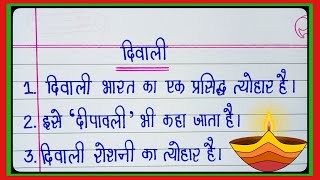 दिवाली
1. दिवाली भारत का एक प्रसिद्ध त्योहार है।
2. इसे 'दीपावली' भी कहा जाता है।
3. दिवाली रोशनी का त्योहार है।